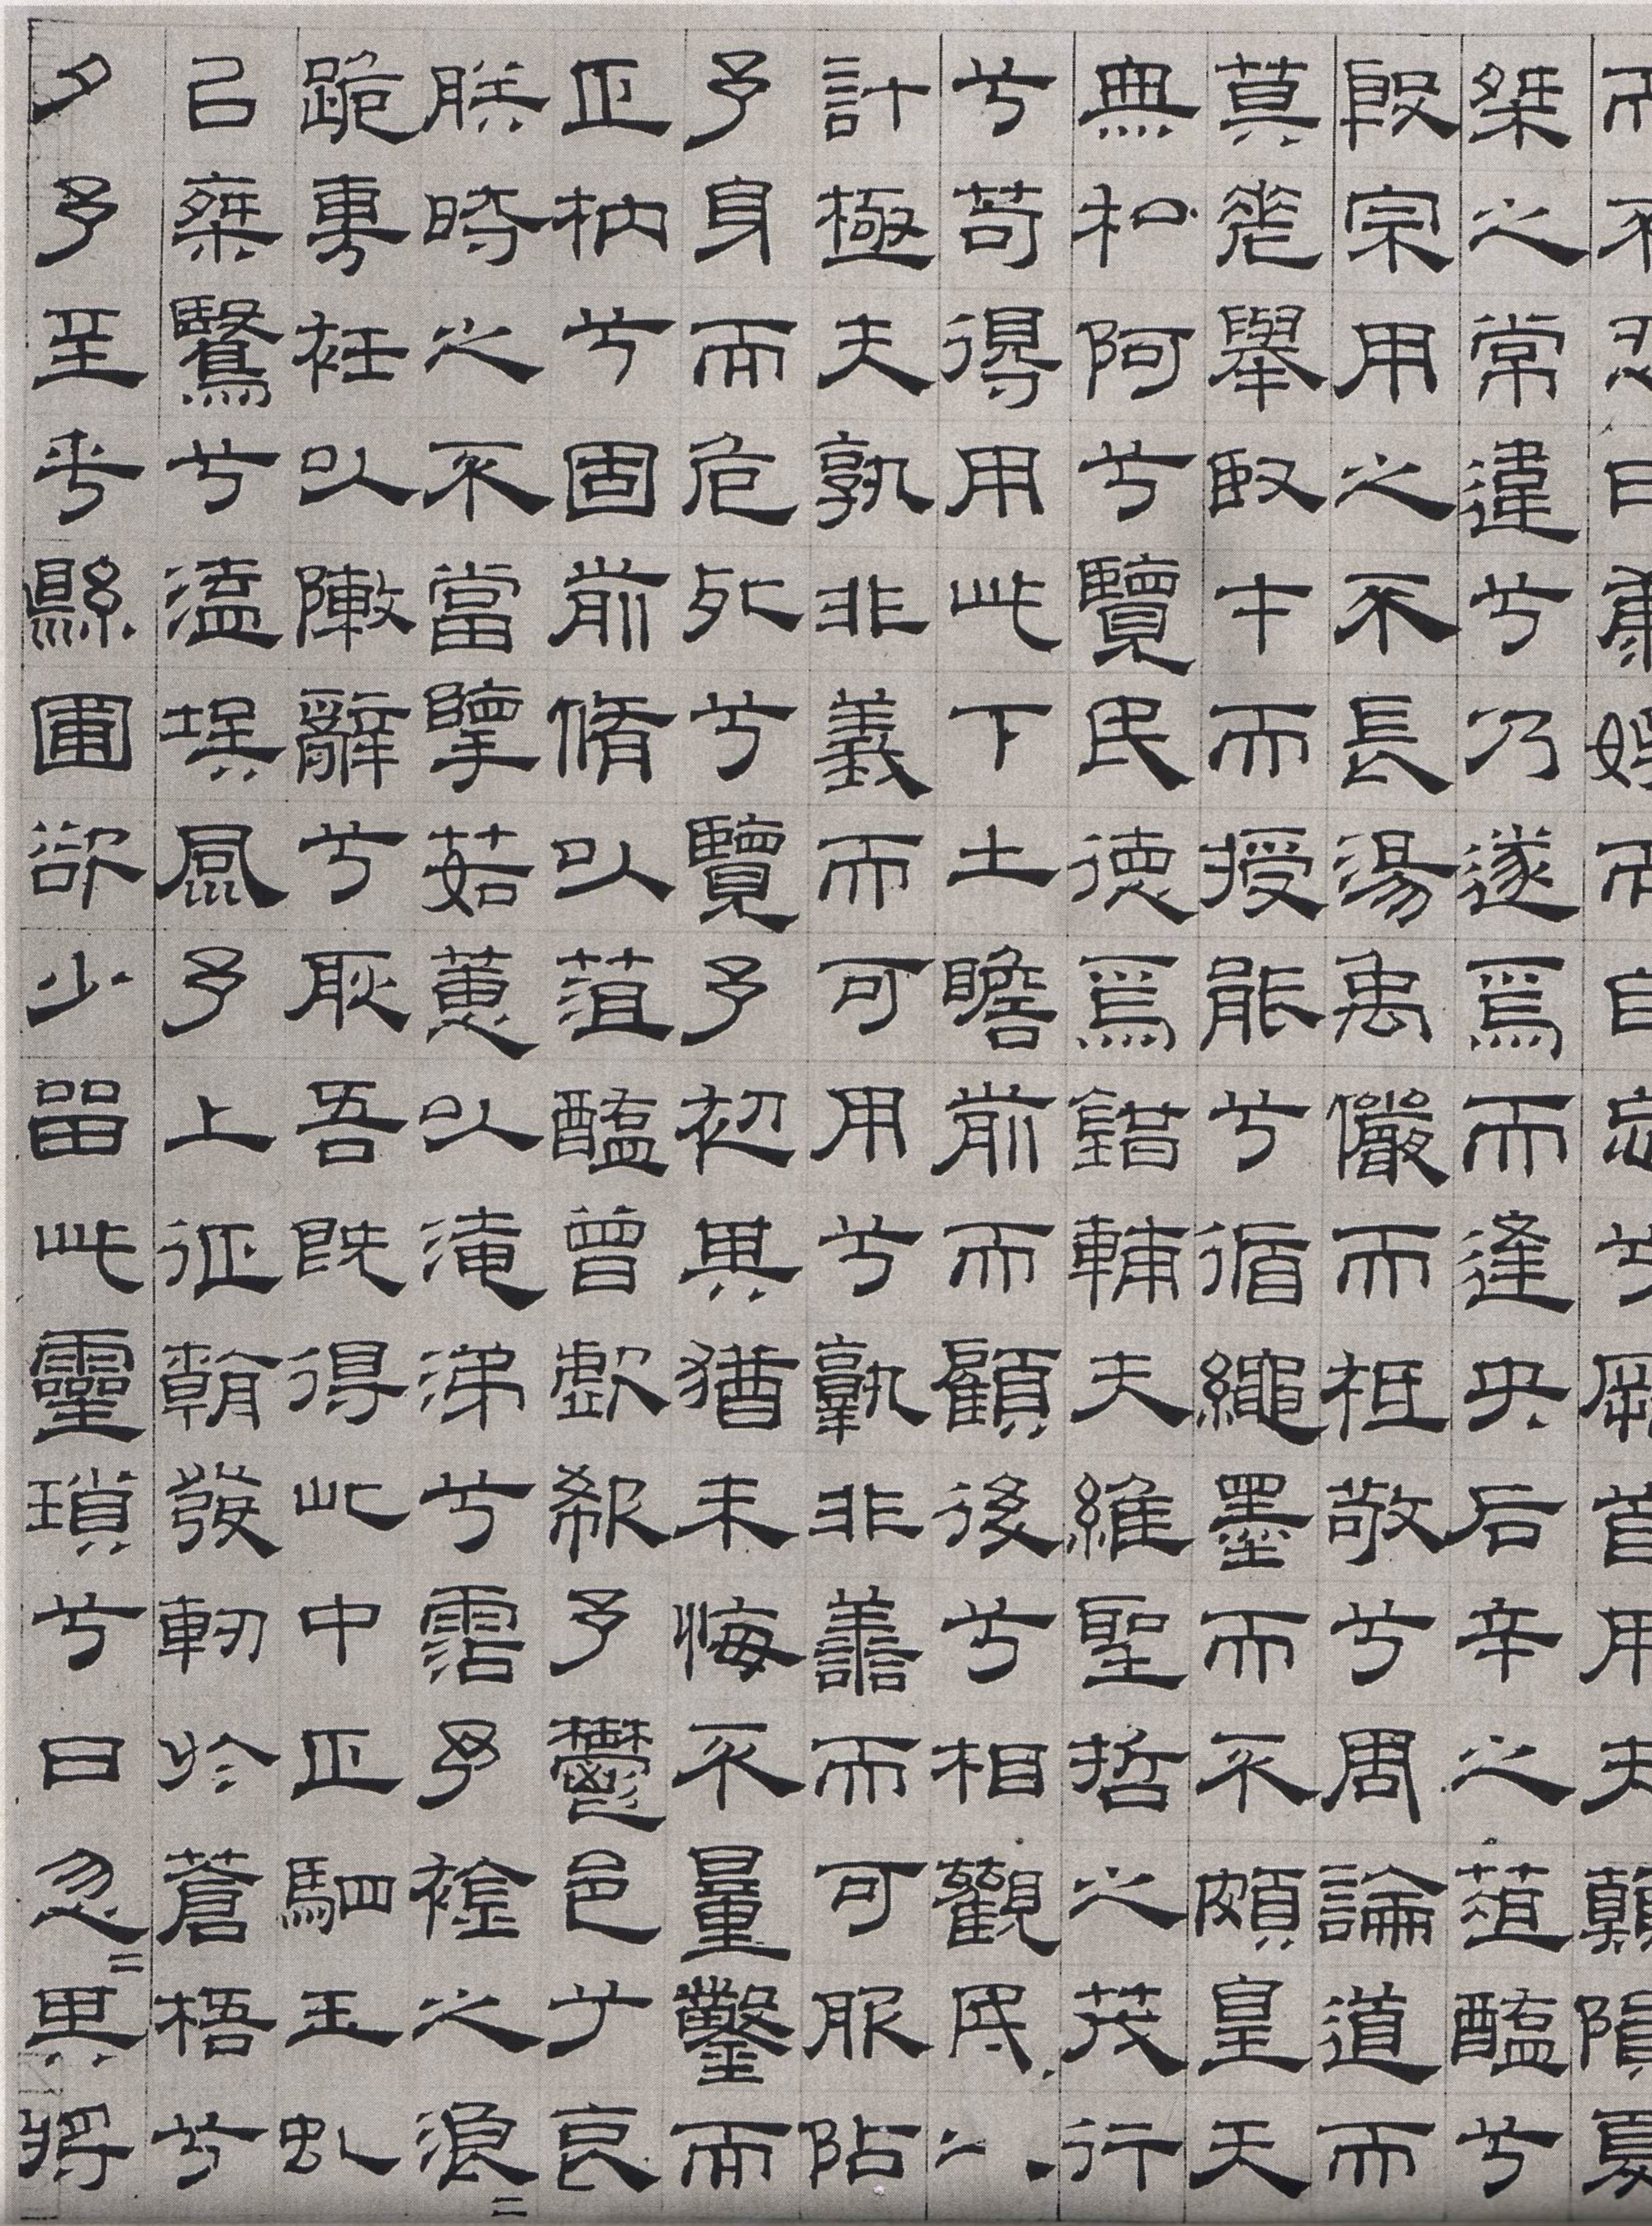 而不忍日康娛而自忘兮厥首用夫顛隕夏
桀之常違兮乃遂焉而逢央后辛之菹醢兮
殷宗用之不長湯禹儼而祗敬兮周論道而
莫差舉臤才而授能兮循繩墨而不頗皇天
無私阿兮覽民德焉錯輔夫維聖哲之茂行
兮苟得用此下土瞻前而顧後兮相觀民之
計極夫孰非義而可用兮孰非善而可服阽
予身而危死兮覽予初其猶未悔不量鑿而
正枘兮固前脩以菹醢曾歔欷予鬱邑兮哀
朕時之不當擥茹蕙以淹涕兮霑予襟之浪=
跪尃衽以陳辭兮耿吾既得此中正駟玉虬
以椉鷖兮溘埃風予上征朝發軔於蒼梧兮
夕予至乎縣圃欲少留此靈瑣兮日忽=其將